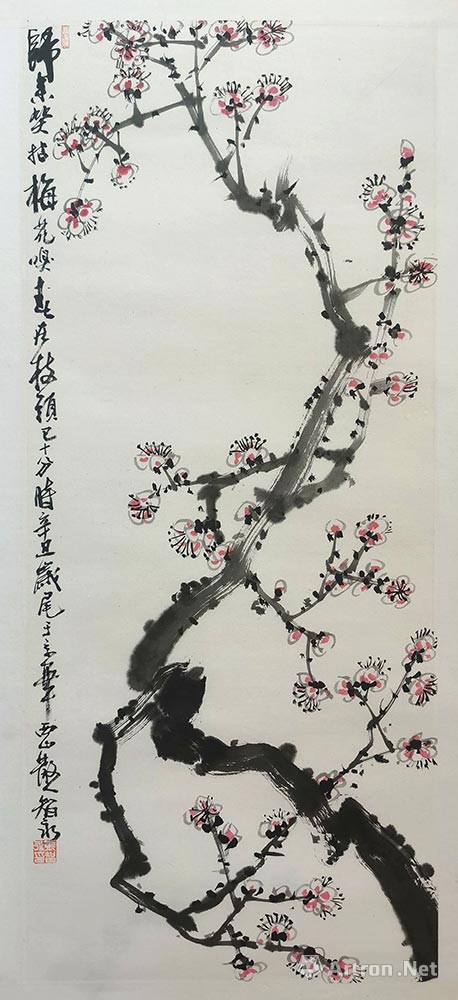 歸来笑拈梅花嗅春在枝頭已十分時辛丑歲尾于京華西山散人智永
Artron.Net